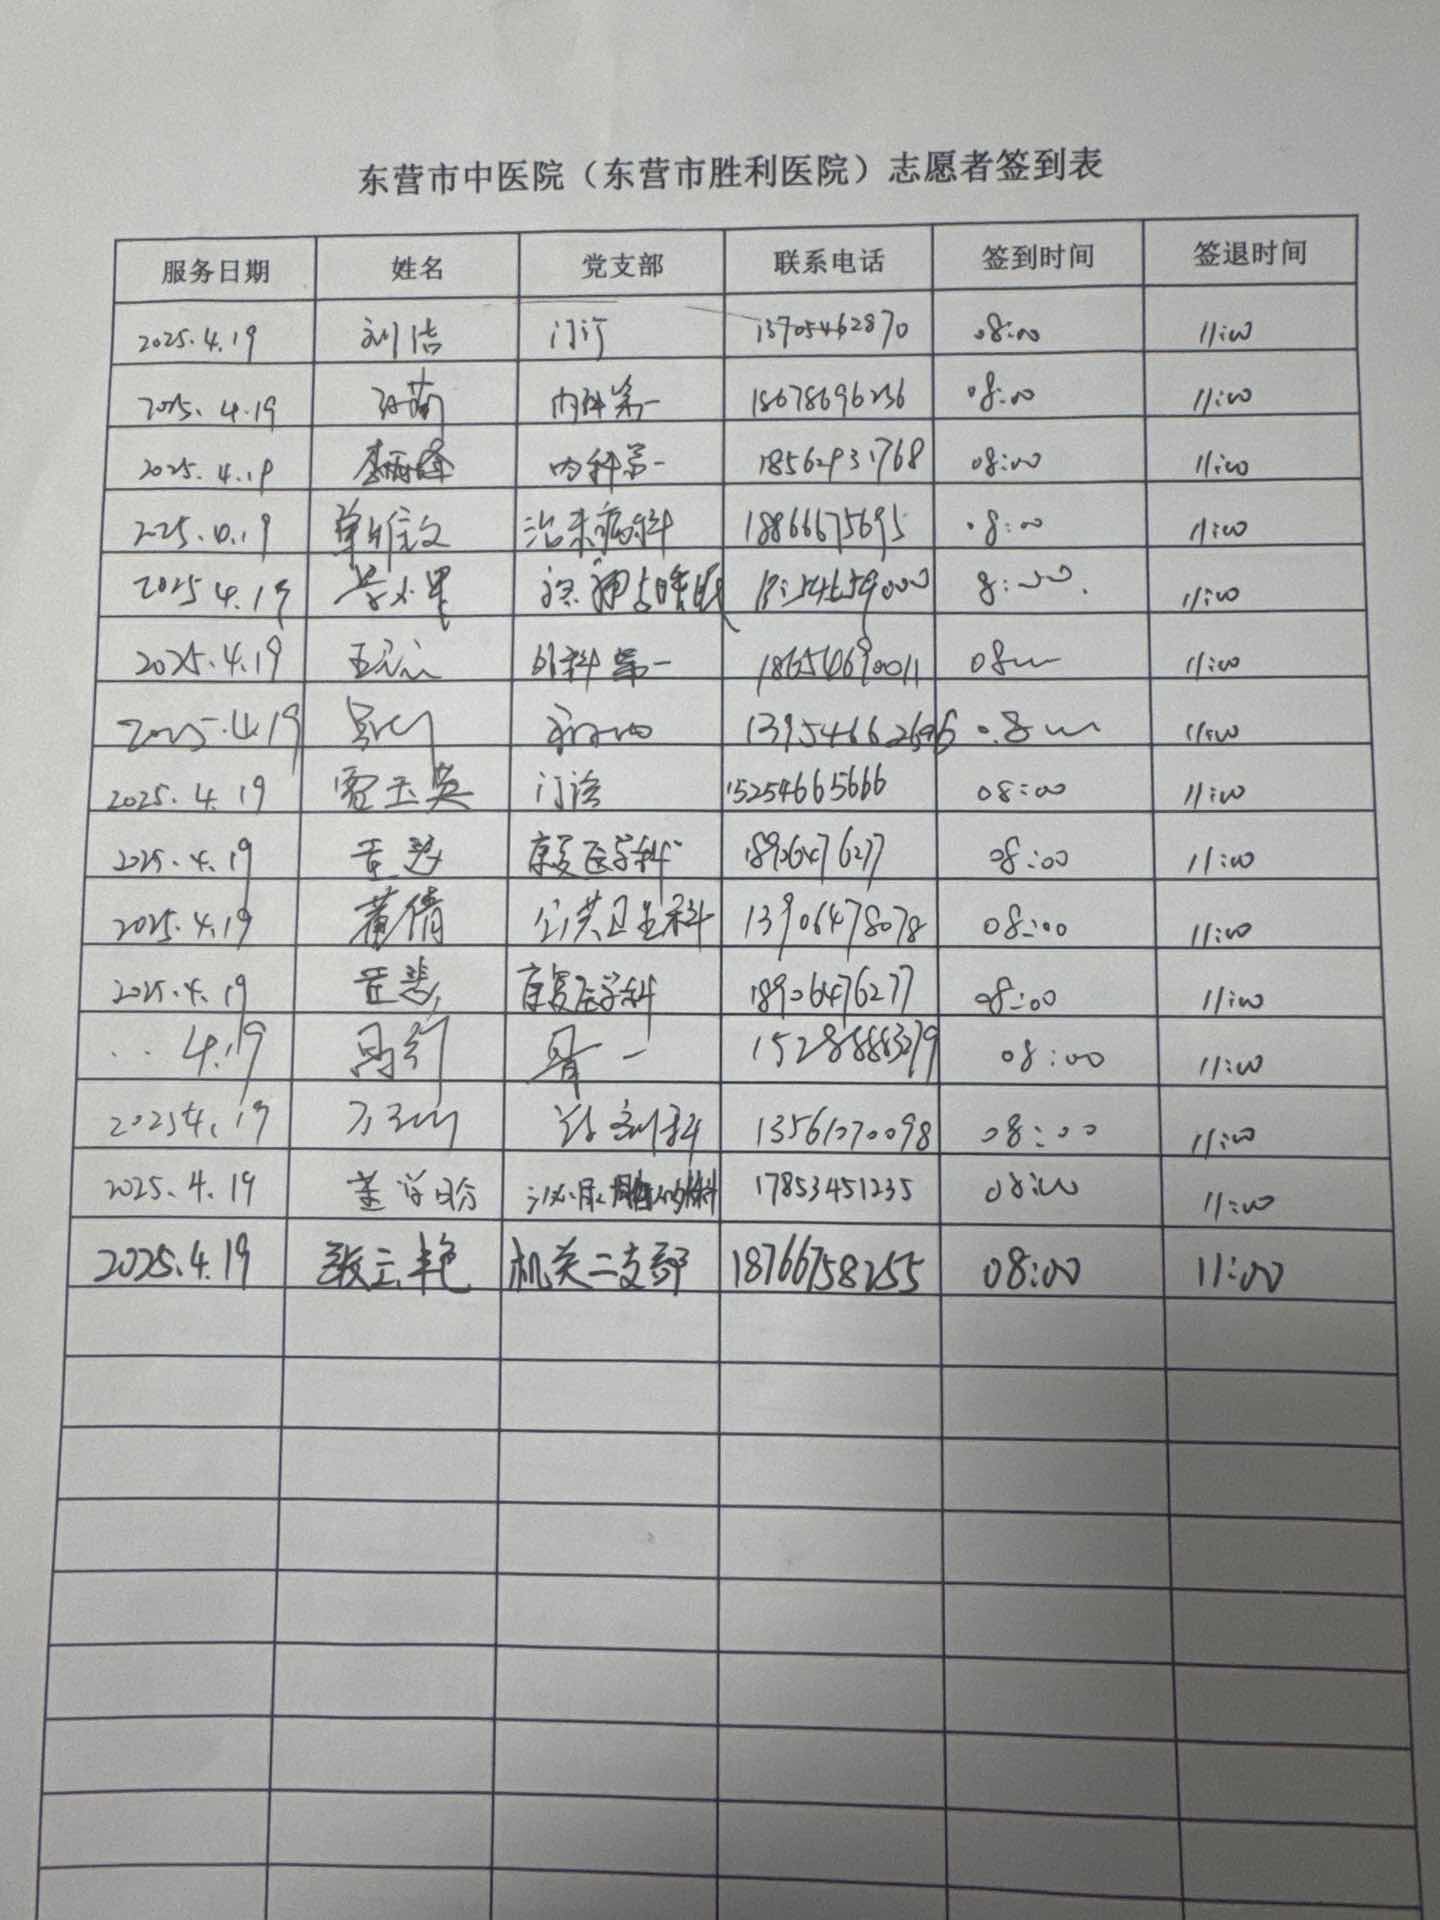 东营市中医院（东营市胜利医院）志愿者签到表
服务日期 姓名 党支部 联系电话 签到时间 签退时间
2025.4.19 刘洁 门诊 13705462870 08:00 11:00
2025.4.19 内科第一 18678696236 08:00 11:00
2025.4.19 内科第一 18562931768 08:00 11:00
2025.4.19 单维文 治未病科 18866675695 08:00 11:00
2025.4.19 8:00 11:00
2025.4.19 外科第一 08:00 11:00
2025.4.19 08:00 11:00
2025.4.19 贾玉英 门诊 15254665666 08:00 11:00
2025.4.19 康复医学科 18906476277 08:00 11:00
2025.4.19 董倩 公共卫生科 13906478078 08:00 11:00
2025.4.19 康复医学科 18906476277 08:00 11:00
4.19 骨一 08:00 11:00
2025 4.19 13561070098 08:00 11:00
2025.4.19 17853451235 08:00 11:00
2025.4.19 机关二支部 18766758255 08:00 11:00